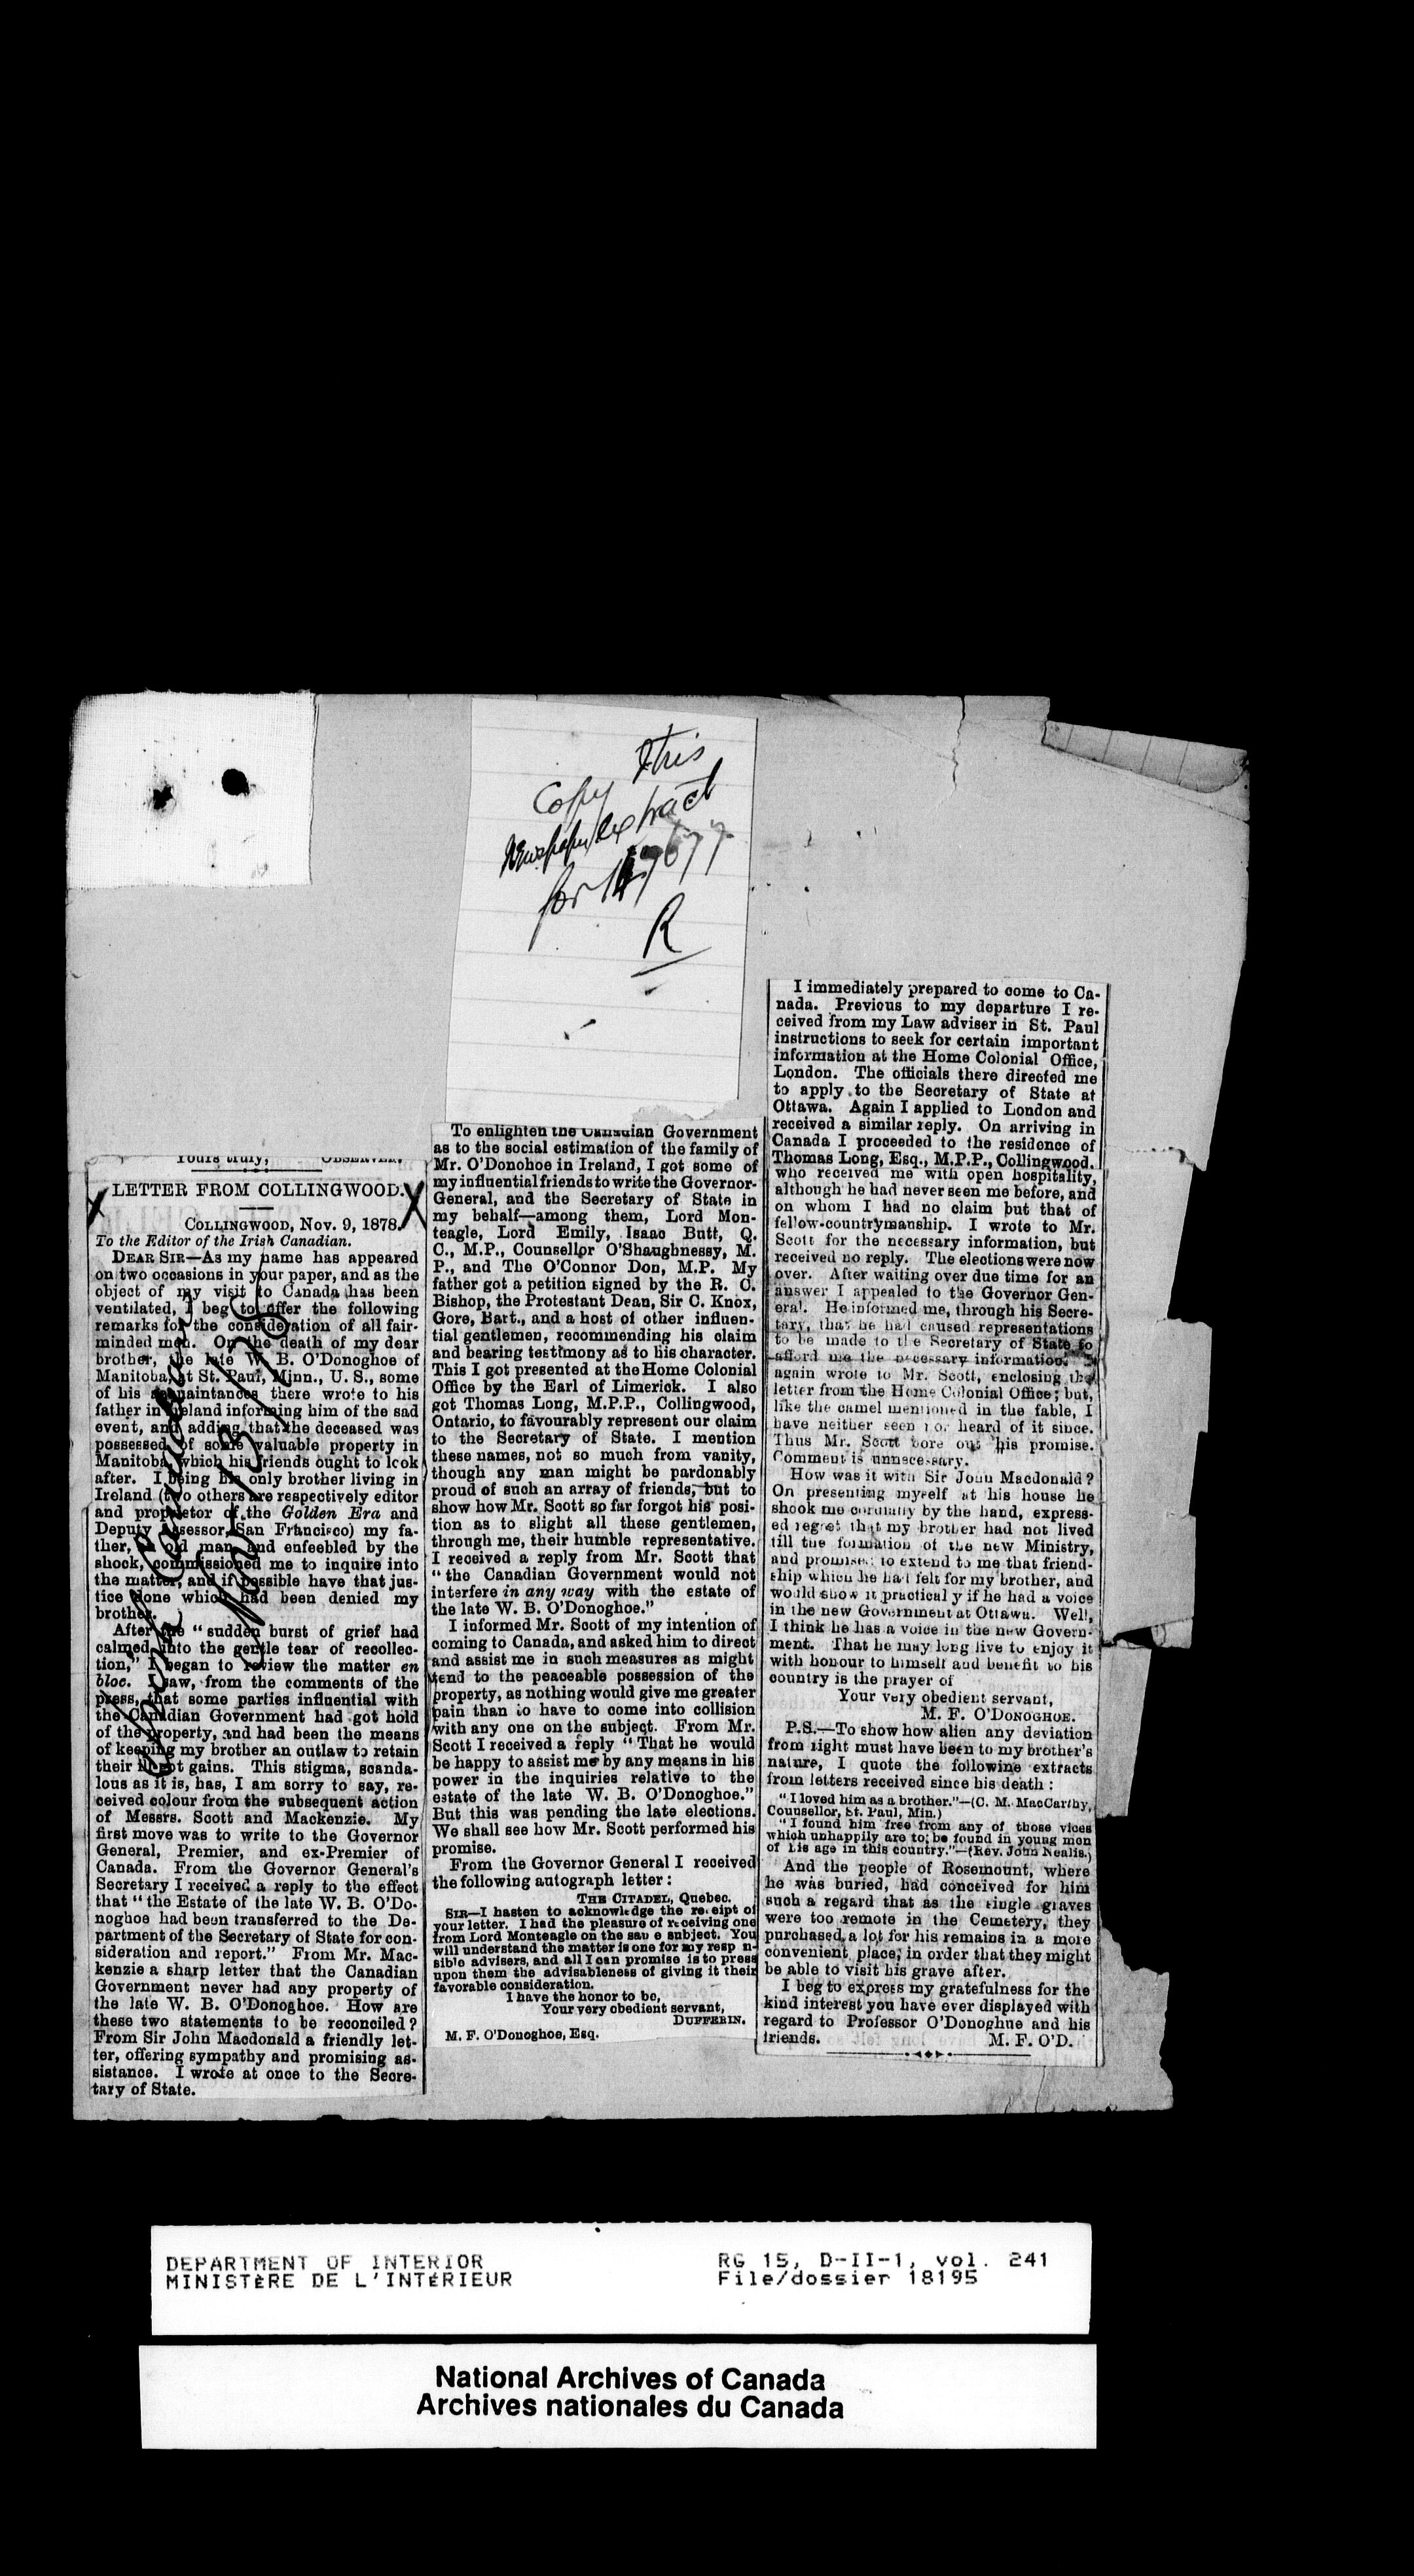 This
Copy
Newspaper extract
for 147677
R
Yours truly, OBSERVER.
LETTER FROM COLLINGWOOD.
COLLINGWOOD, Nov. 9, 1878.
To the Editor of the Irish Canadian.
DEAR SIR—As my name has appeared
on two occasions in your paper, and as the
object of my visit to Canada has been
ventilated, I beg to offer the following
remarks for the consideration of all fair-
minded men. On the death of my dear
brother, the late W. B. O'Donoghoe of
Manitoba, at St. Paul, Minn., U. S., some
of his acquaintances there wrote to his
father in Ireland informing him of the sad
event, and adding that the deceased was
possessed of some valuable property in
Manitoba, which his friends ought to look
after. I being his only brother living in
Ireland (two others are respectively editor
and proprietor of the Golden Era and
Deputy Assessor, San Francisco) my fa-
ther, old man and enfeebled by the
shock, commissioned me to inquire into
the matter, and if possible have that jus-
tice done which had been denied my
brother.
After the "sudden burst of grief had
calmed into the gentle tear of recollec-
tion," I began to review the matter en
bloc. I saw, from the comments of the
press, that some parties influential with
the Canadian Government had got hold
of the property, and had been the means
of keeping my brother an outlaw to retain
their ill got gains. This stigma, scanda-
lous as it is, has, I am sorry to say, re-
ceived colour from the subsequent action
of Messrs. Scott and Mackenzie. My
first move was to write to the Governor
General, Premier, and ex-Premier of
Canada. From the Governor General's
Secretary I received a reply to the effect
that "the Estate of the late W. B. O'Do-
noghoe had been transferred to the De-
partment of the Secretary of State for con-
sideration and report." From Mr. Mac-
kenzie a sharp letter that the Canadian
Government never had any property of
the late W. B. O'Donoghoe. How are
these two statements to be reconciled?
From Sir John Macdonald a friendly let-
ter, offering sympathy and promising as-
sistance. I wrote at once to the Secre-
tary of State.
Irish Canadian
Nov 13/78
To enlighten the Canadian Government
as to the social estimation of the family of
Mr. O'Donohoe in Ireland, I got some of
my influential friends to write the Governor-
General, and the Secretary of State in
my behalf—among them, Lord Mon-
teagle, Lord Emily, Isaac Butt, Q.
C., M.P., Counsellor O'Shaughnessy, M.
P., and The O'Connor Don, M.P. My
father got a petition signed by the R. C.
Bishop, the Protestant Dean, Sir C. Knox,
Gore, Bart., and a host of other influen-
tial gentlemen, recommending his claim
and bearing testimony as to his character.
This I got presented at the Home Colonial
Office by the Earl of Limerick. I also
got Thomas Long, M.P.P., Collingwood,
Ontario, to favourably represent our claim
to the Secretary of State. I mention
these names, not so much from vanity,
though any man might be pardonably
proud of such an array of friends, but to
show how Mr. Scott so far forgot his posi-
tion as to slight all these gentlemen,
through me, their humble representative.
I received a reply from Mr. Scott that
"the Canadian Government would not
interfere in any way with the estate of
the late W. B. O'Donoghoe."
I informed Mr. Scott of my intention of
coming to Canada, and asked him to direct
and assist me in such measures as might
tend to the peaceable possession of the
property, as nothing would give me greater
pain than to have to come into collision
with any one on the subject. From Mr.
Scott I received a reply "That he would
be happy to assist me by any means in his
power in the inquiries relative to the
estate of the late W. B. O'Donoghoe."
But this was pending the late elections.
We shall see how Mr. Scott performed his
promise.
From the Governor General I received
the following autograph letter:
THE CITADEL, Quebec.
SIR—I hasten to acknowledge the receipt of
your letter. I had the pleasure of receiving one
from Lord Monteagle on the same subject. You
will understand the matter is one for my respon-
sible advisers, and all I can promise is to press
upon them the advisableness of giving it their
favorable consideration.
I have the honor to be,
Your very obedient servant,
DUFFERIN.
M. F. O'Donoghoe, Esq.
I immediately prepared to come to Ca-
nada. Previous to my departure I re-
ceived from my Law adviser in St. Paul
instructions to seek for certain important
information at the Home Colonial Office,
London. The officials there directed me
to apply to the Secretary of State at
Ottawa. Again I applied to London and
received a similar reply. On arriving in
Canada I proceeded to the residence of
Thomas Long, Esq., M.P.P., Collingwood.
who received me with open hospitality,
although he had never seen me before, and
on whom I had no claim but that of
fellow-countrymanship. I wrote to Mr.
Scott for the necessary information, but
received no reply. The elections were now
over. After waiting over due time for an
answer I appealed to the Governor Gen-
eral. He informed me, through his Secre-
tary, that he had caused representations
to be made to the Secretary of State to
afford me the necessary information. I
again wrote to Mr. Scott, enclosing the
letter from the Home Colonial Office; but,
like the camel mentioned in the fable, I
have neither seen nor heard of it since.
Thus Mr. Scott bore out his promise.
Comment is unnecessary.
How was it with Sir John Macdonald?
On presenting myself at his house he
shook me cordially by the hand, express-
ed regret that my brother had not lived
till the formation of the new Ministry,
and promised to extend to me that friend-
ship which he had felt for my brother, and
would show it practically if he had a voice
in the new Government at Ottawa. Well,
I think he has a voice in the new Govern-
ment. That he may long live to enjoy it
with honour to himself and benefit to his
country is the prayer of
Your very obedient servant,
M. F. O'DONOGHOE.
P.S.—To show how alien any deviation
from right must have been to my brother's
nature, I quote the following extracts
from letters received since his death:
"I loved him as a brother."—(C. M. MacCarthy,
Counsellor, St. Paul, Min.)
"I found him free from any of those vices
which unhappily are to be found in young men
of his age in this country."—(Rev. John Nealis.)
And the people of Rosemount, where
he was buried, had conceived for him
such a regard that as the single graves
were too remote in the Cemetery, they
purchased a lot for his remains in a more
convenient place, in order that they might
be able to visit his grave after.
I beg to express my gratefulness for the
kind interest you have ever displayed with
regard to Professor O'Donoghue and his
friends. M. F. O'D.
DEPARTMENT OF INTERIOR
MINISTÈRE DE L'INTÉRIEUR
RG 15, D-II-1, vol. 241
File/dossier 18195
National Archives of Canada
Archives nationales du Canada